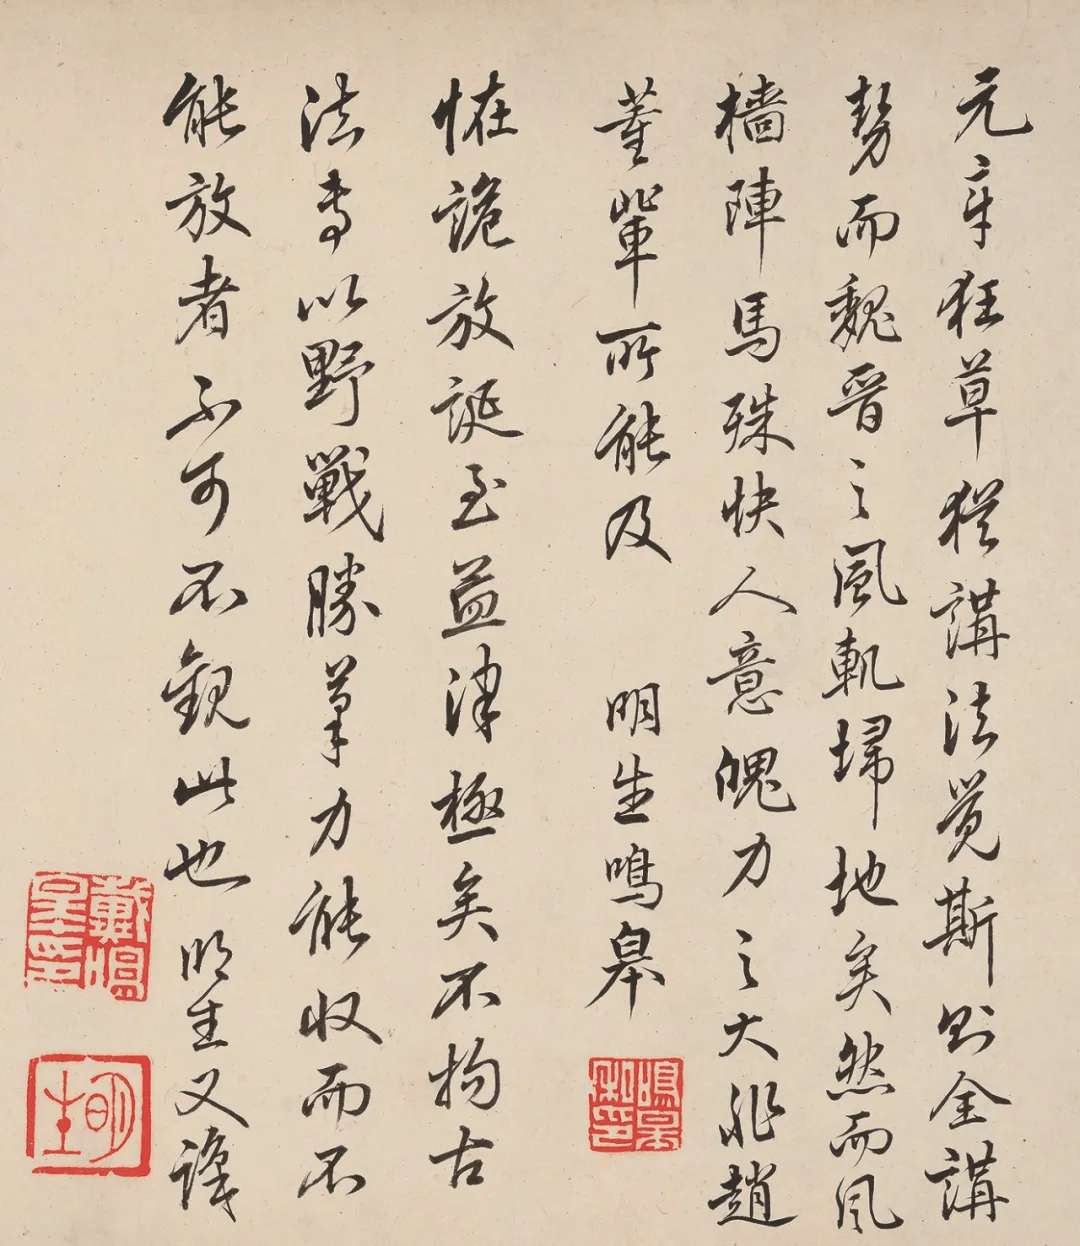 元章狂草猶講法覺斯則全講
勢而魏晉之風軌埽地矣然而風
檣陣馬殊快人意魄力之大非趙
董輩所能及　明生鳴皋
鳴皋私印
恠詭放誕至益津極矣不拘古
法專以野戰勝筆力能收而不
能放者不可不觀此也明生又識
明生